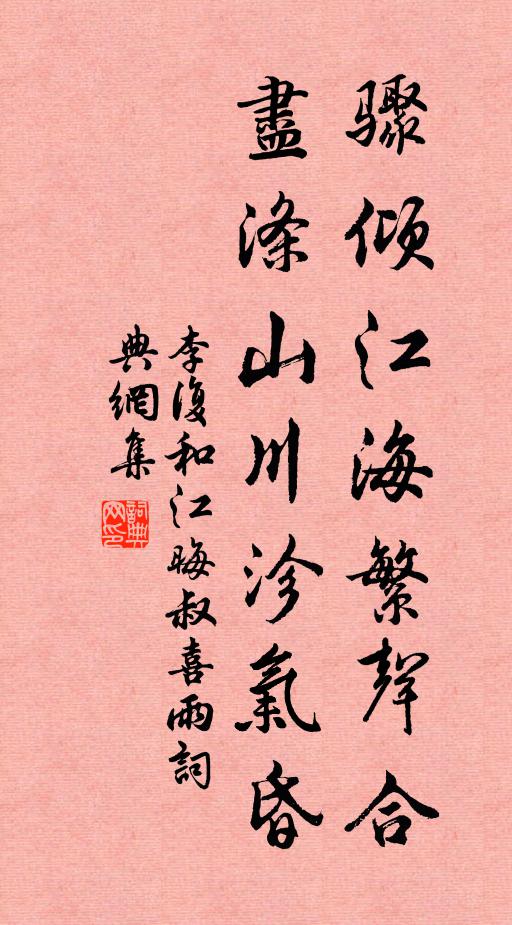 驟傾江海繁聲合
盡滌山川沴氣昏
李復和江晦叔喜雨詞
典網集
詞典網印